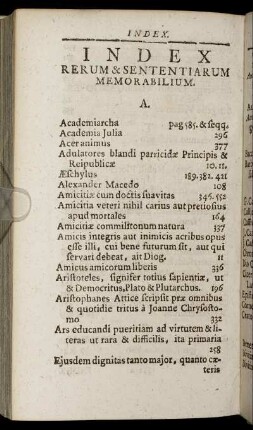 INDEX.
INDEX
RERUM & SENTENTIARUM
MEMORABILIUM.
A.
Academiarcha pag 585. & seqq.
Academia Julia 296
Acer animus 377
Adulatores blandi parricidæ Principis &
Reipublicæ 10. 11.
Æschylus 189. 382. 421
Alexander Macedo 108
Amicitiæ cum doctis suavitas 346. 552
Amicitia veteri nihil carius aut pretiosius
apud mortales 164
Amicitiæ commilitonum natura 337
Amicis integris aut inimicis acribus opus
esse illi, cui bene futurum sit, aut qui
servari debeat, ait Diog. 11
Amicus amicorum liberis 336
Aristoteles, signifer totius sapientiæ, ut
& Democritus, Plato & Plutarchus. 196
Aristophanes Attice scripsit præ omnibus
& quotidie tritus à Joanne Chrysosto-
mo 332
Ars educandi pueritiam ad virtutem & li-
teras ut rara & difficilis, ita primaria
258
Ejusdem dignitas tanto major, quanto cæ-
teris